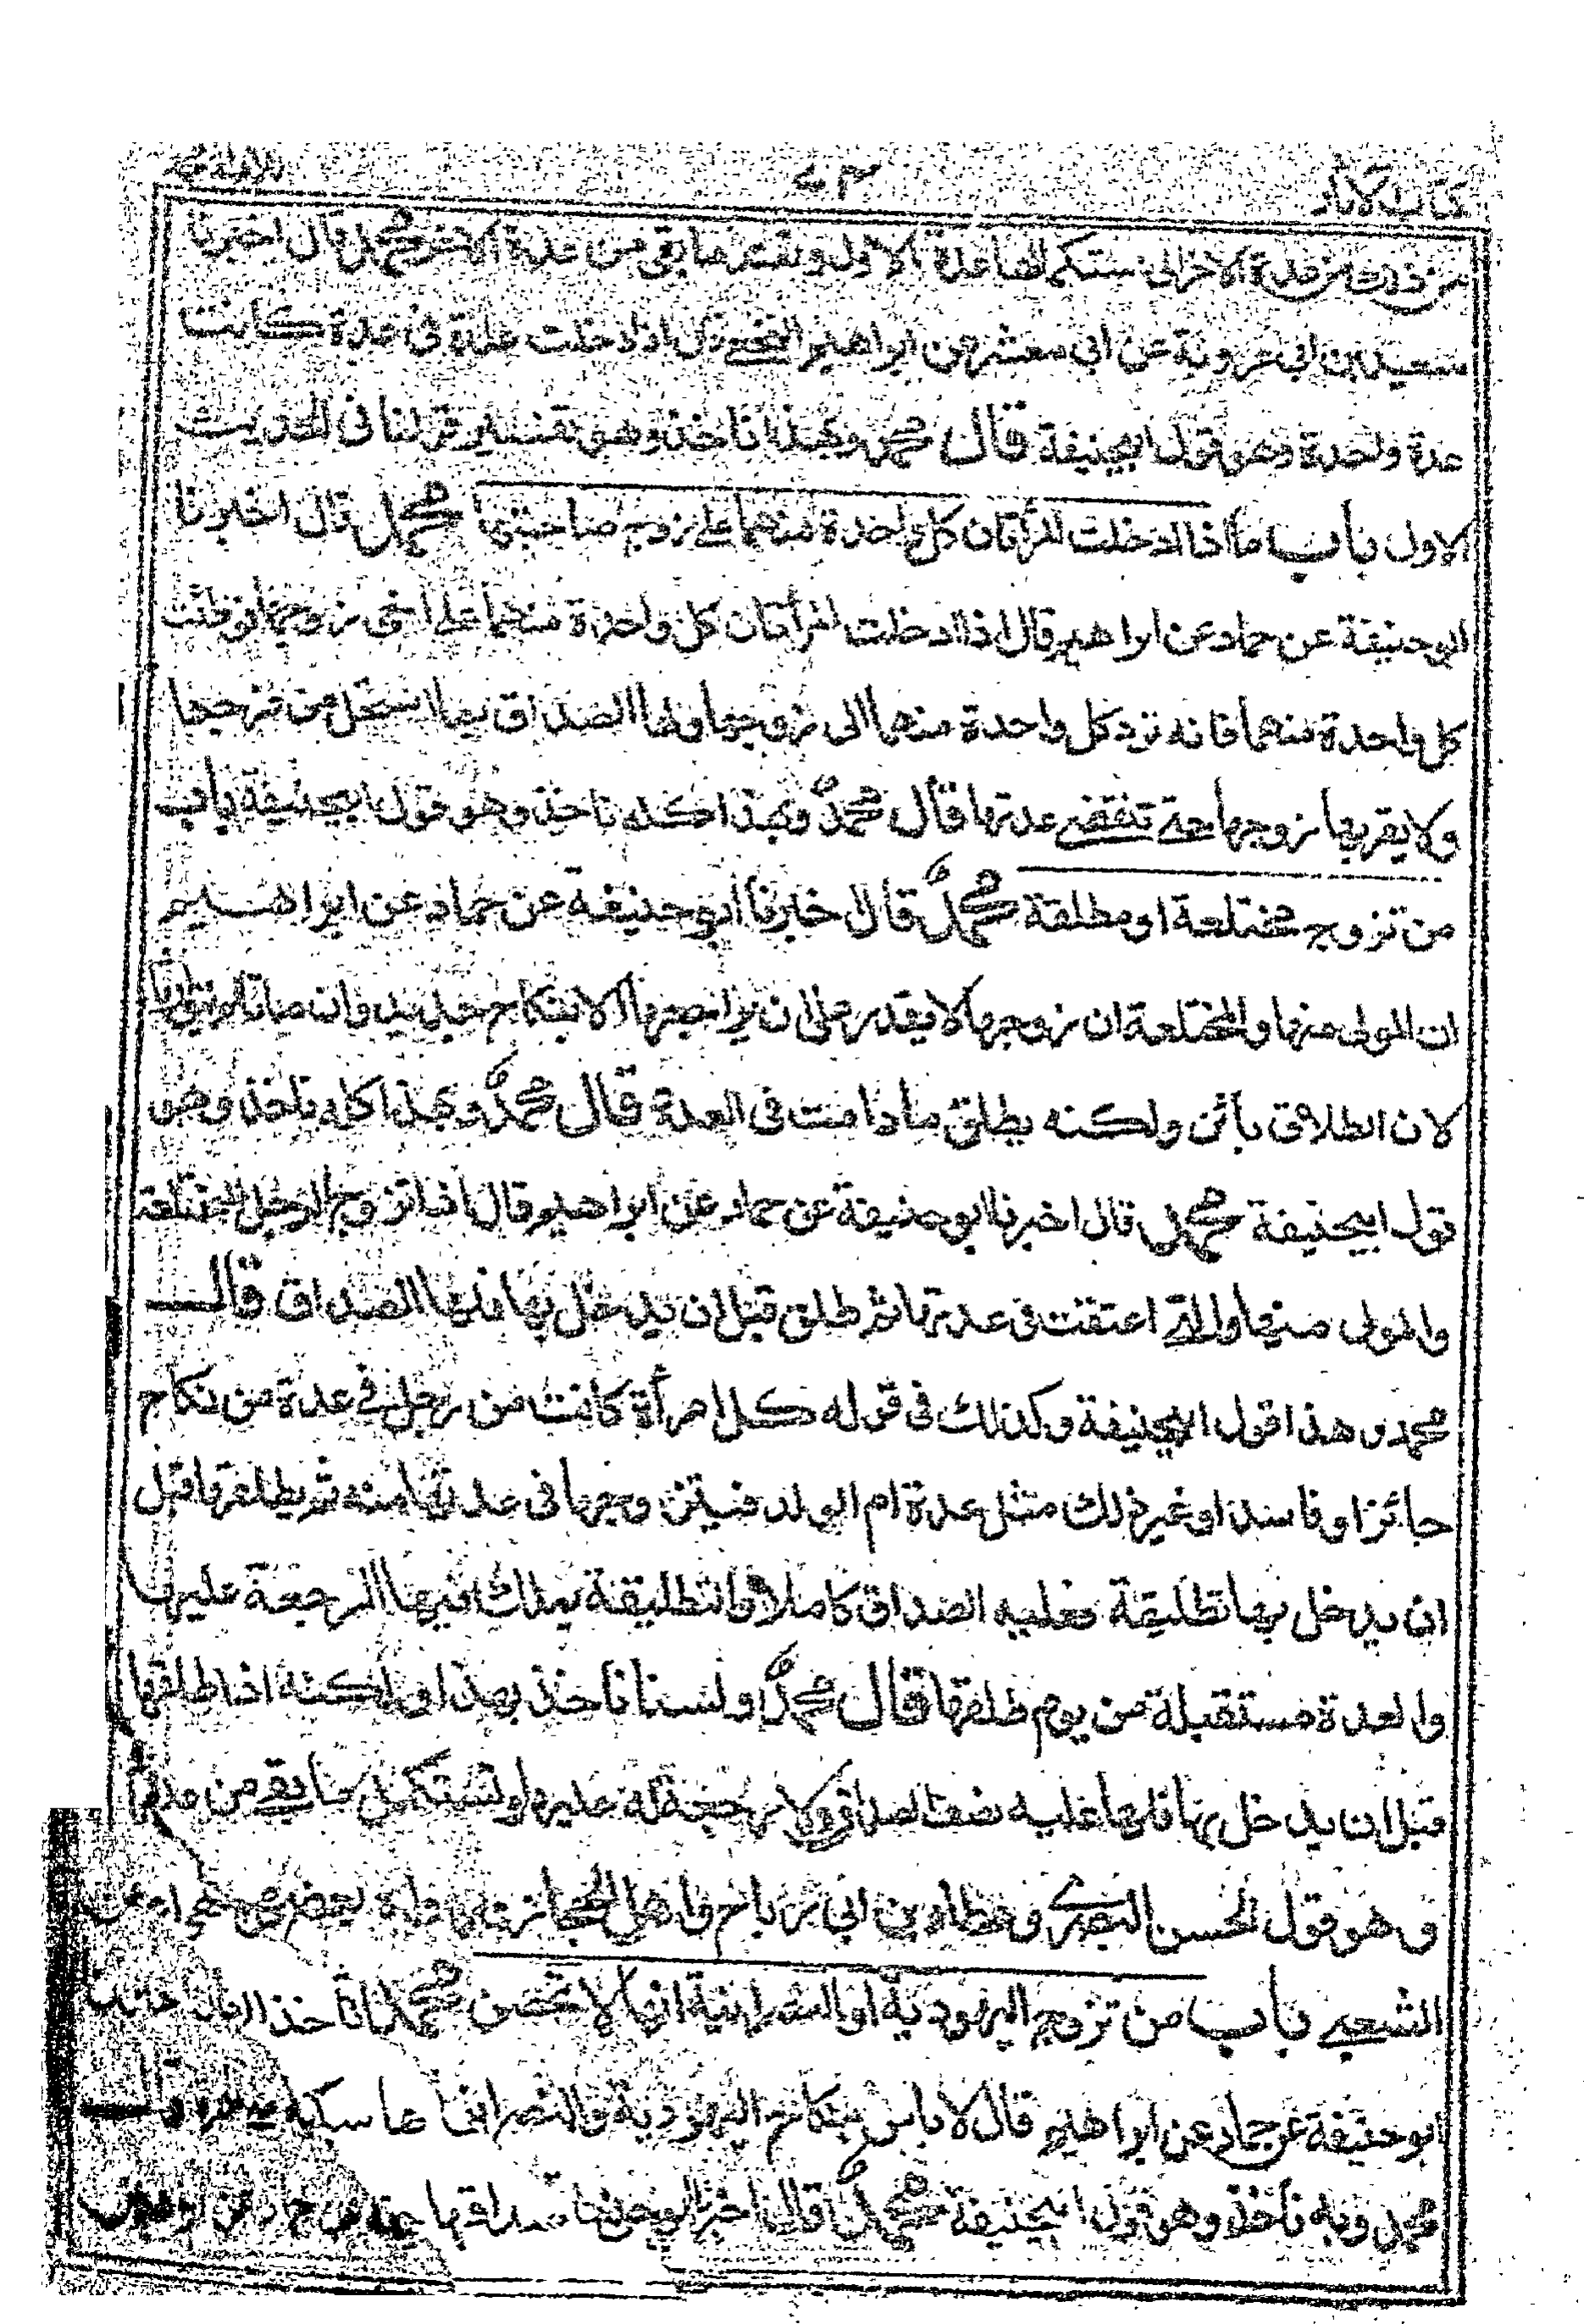 كتاب الآثار
من ذلك من عدة الآخر الى ستكمالها عدة الاول وتعتد مابقى من عدة الآخر محمد قال اخبرنا
سعيد بن ابى عروبة عن ابى معشر عن ابراهيم النخعے قال اذا دخلت عدة فى عدة كانت
عدة واحدة وهو قول ابيحنيفة قال محمد وبهذا ناخذ وهو تفسير قولنا فى الحديث
الاول باب ما اذا ادخلت المرأتان كل واحدة منهما على زوج صاحبتها محمد قال اخبرنا
ابو حنيفة عن حماد عن ابراهيم قال اذا ادخلت المرأتان كل واحدة منهما على زوجها فوطئت
كل واحدة منهما فانه ترد كل واحدة منهما الى زوجها ولها الصداق بما استحل من فرجها
ولا يقربها زوجها حتے تنقضے عدتها قال محمدؒ وبهذا كله ناخذ وهو قول ابيحنيفة باب
من تزوج مختلعة او مطلقة محمدؒ قال اخبرنا ابو حنيفة عن حماد عن ابراهيم
ان المولى منها والمختلعة ان زوجها لا يقدر على ان يراجعها الا بنكاح جديد وان ماتا لم يتوارثا
لان الطلاق بائن ولكنه يطلق مادامت فى العدة قال محمدؒ وبهذا كله ناخذ وهو
قول ابيحنيفة محمد قال اخبرنا ابو حنيفة عن حماد عن ابراهيم قال اذا تزوج الرجل المختلعة
والمولى منها والتے اعتقت فى عدتها ثم طلق قبل ان يدخل بها فلها الصداق قال
محمد و هذا قول ابيحنيفة وكذلك فى قوله كل امرأة كانت من رجل فے عدة من نكاح
جائز او فاسد او غير ذلك مثل عدة ام الولد فيتزوجها فى عدتها منه ثم يطلقها قبل
ان يدخل بها تطليقة فعليه الصداق كاملا والتطليقة يملك فيها الرجعة عليها
والعدة مستقبلة من يوم طلقها قال محمدؒ ولسنا ناخذ بهذا ولكنه اذا طلقها
قبل ان يدخل بها فلها عليه نصف الصداق ولا رجعة له عليها وتستكمل ما بقے من عدتها
و هو قول الحسن البصرى وعطاء بن ابى رباح واهل الحجاز
الشعبے باب من تزوج اليهودية او النصرانية انها لا تحصن محمد
ابو حنيفة عن حماد عن ابراهيم قال لا باس بنكاح اليهودية والنصرانية
محمد وبه نأخذ وهو قول ابيحنيفة محمدؒ قال اخبرنا ابو حنيفة